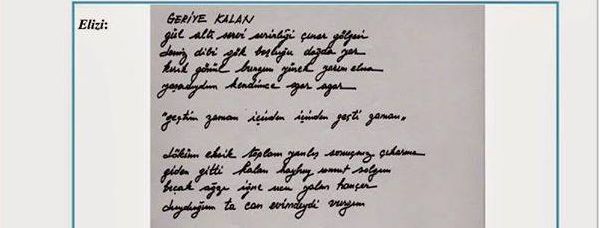 Elizi:
GERİYE KALAN
gül altı servi serinliği çınar gölgesi
deniz dibi gök boşluğu dağda yar
kırık gönül burgun yürek yarım elma
yaşadıydım kendimce azar azar
"geçtim zaman içinden içimden geçti zaman"
döküm eksik toplam yanlış sonuçsuz çıkarma
giden gitti kalan kayıp umut solgun
bıçak ağzı iğne ucu yalan hançer
duyduğum ta can evimdeydi vurgun